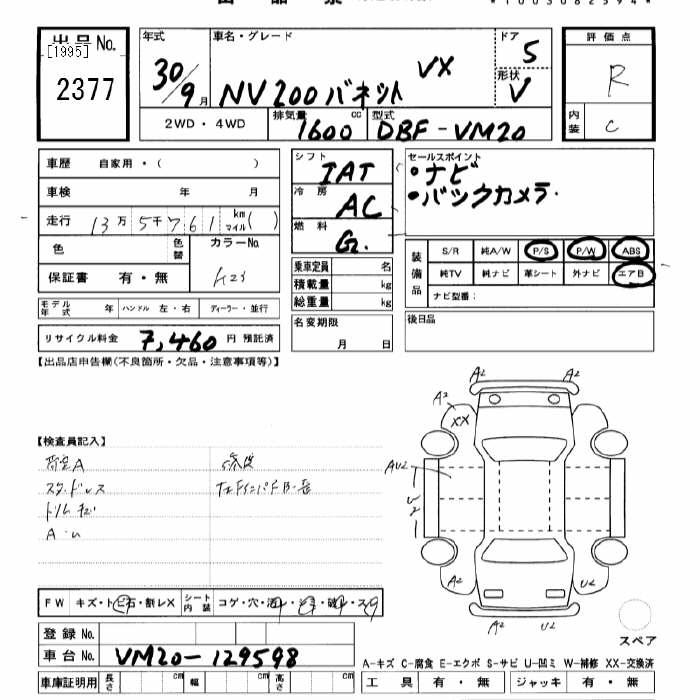 *1003082594*
出品No.
[1995]
2377
年式
30/9月
車名・グレード
NV200バネット VX
ドア
5
形状
V
評価点
R
内装
C
2WD・4WD
排気量
1600cc
型式
DBF-VM20
車歴 自家用・( )
車検 年 月
走行 13万5千761km マイル( )
色
色替
カラーNo.
K23
保証書 有・無
モデル年式 年 ハンドル 左・右 ディーラー・並行
リサイクル料金 7,460円 預託済
シフト
IAT
冷房
AC
燃料
G.
乗車定員 名
積載量 kg
総重量 kg
名変期限
月 日
セールスポイント
・ナビ
・バックカメラ.
装備品
S/R 純A/W P/S P/W ABS
純TV 純ナビ 革シート 外ナビ エアB
ナビ型番:
後日品
【出品店申告欄(不良箇所・欠品・注意事項等)】
【検査員記入】
荷室A
スタッドレス
A・U
FW キズ・トビ石・割レX
シート内装 コゲ・穴・
登録No.
車台No. VM20-129598
車庫証明用 長さ cm 幅 cm 高さ cm
A2
A2
A2
XX
AU2
U2
A2
U2
A2
U2
スペア
A-キズ C-腐食 E-エクボ S-サビ U-凹ミ W-補修 XX-交換済
工具 有・無 ジャッキ 有・無